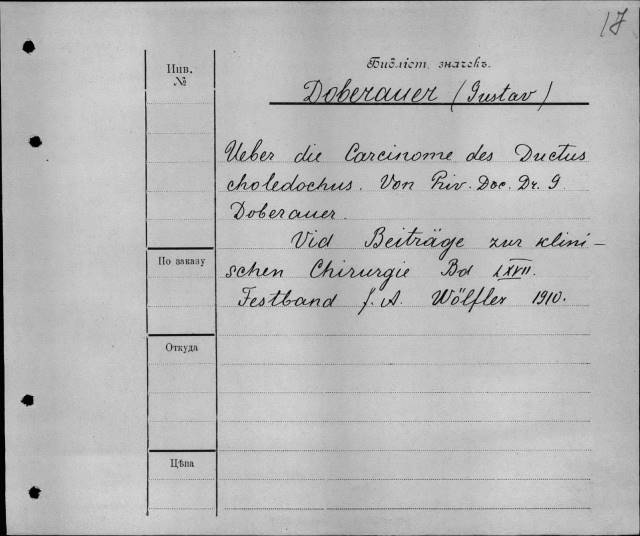 17
Инв.
№
Библіот. значекъ.
Doberauer (Gustav)
Ueber die Carcinome des Ductus
choledochus. Von Priv. Doc. Dr. G
Doberauer.
Vid Beiträge zur klini-
По заказу
schen Chirurgie Bd LXVII.
Festband f. A. Wölfler 1910.
Откуда
Цѣна